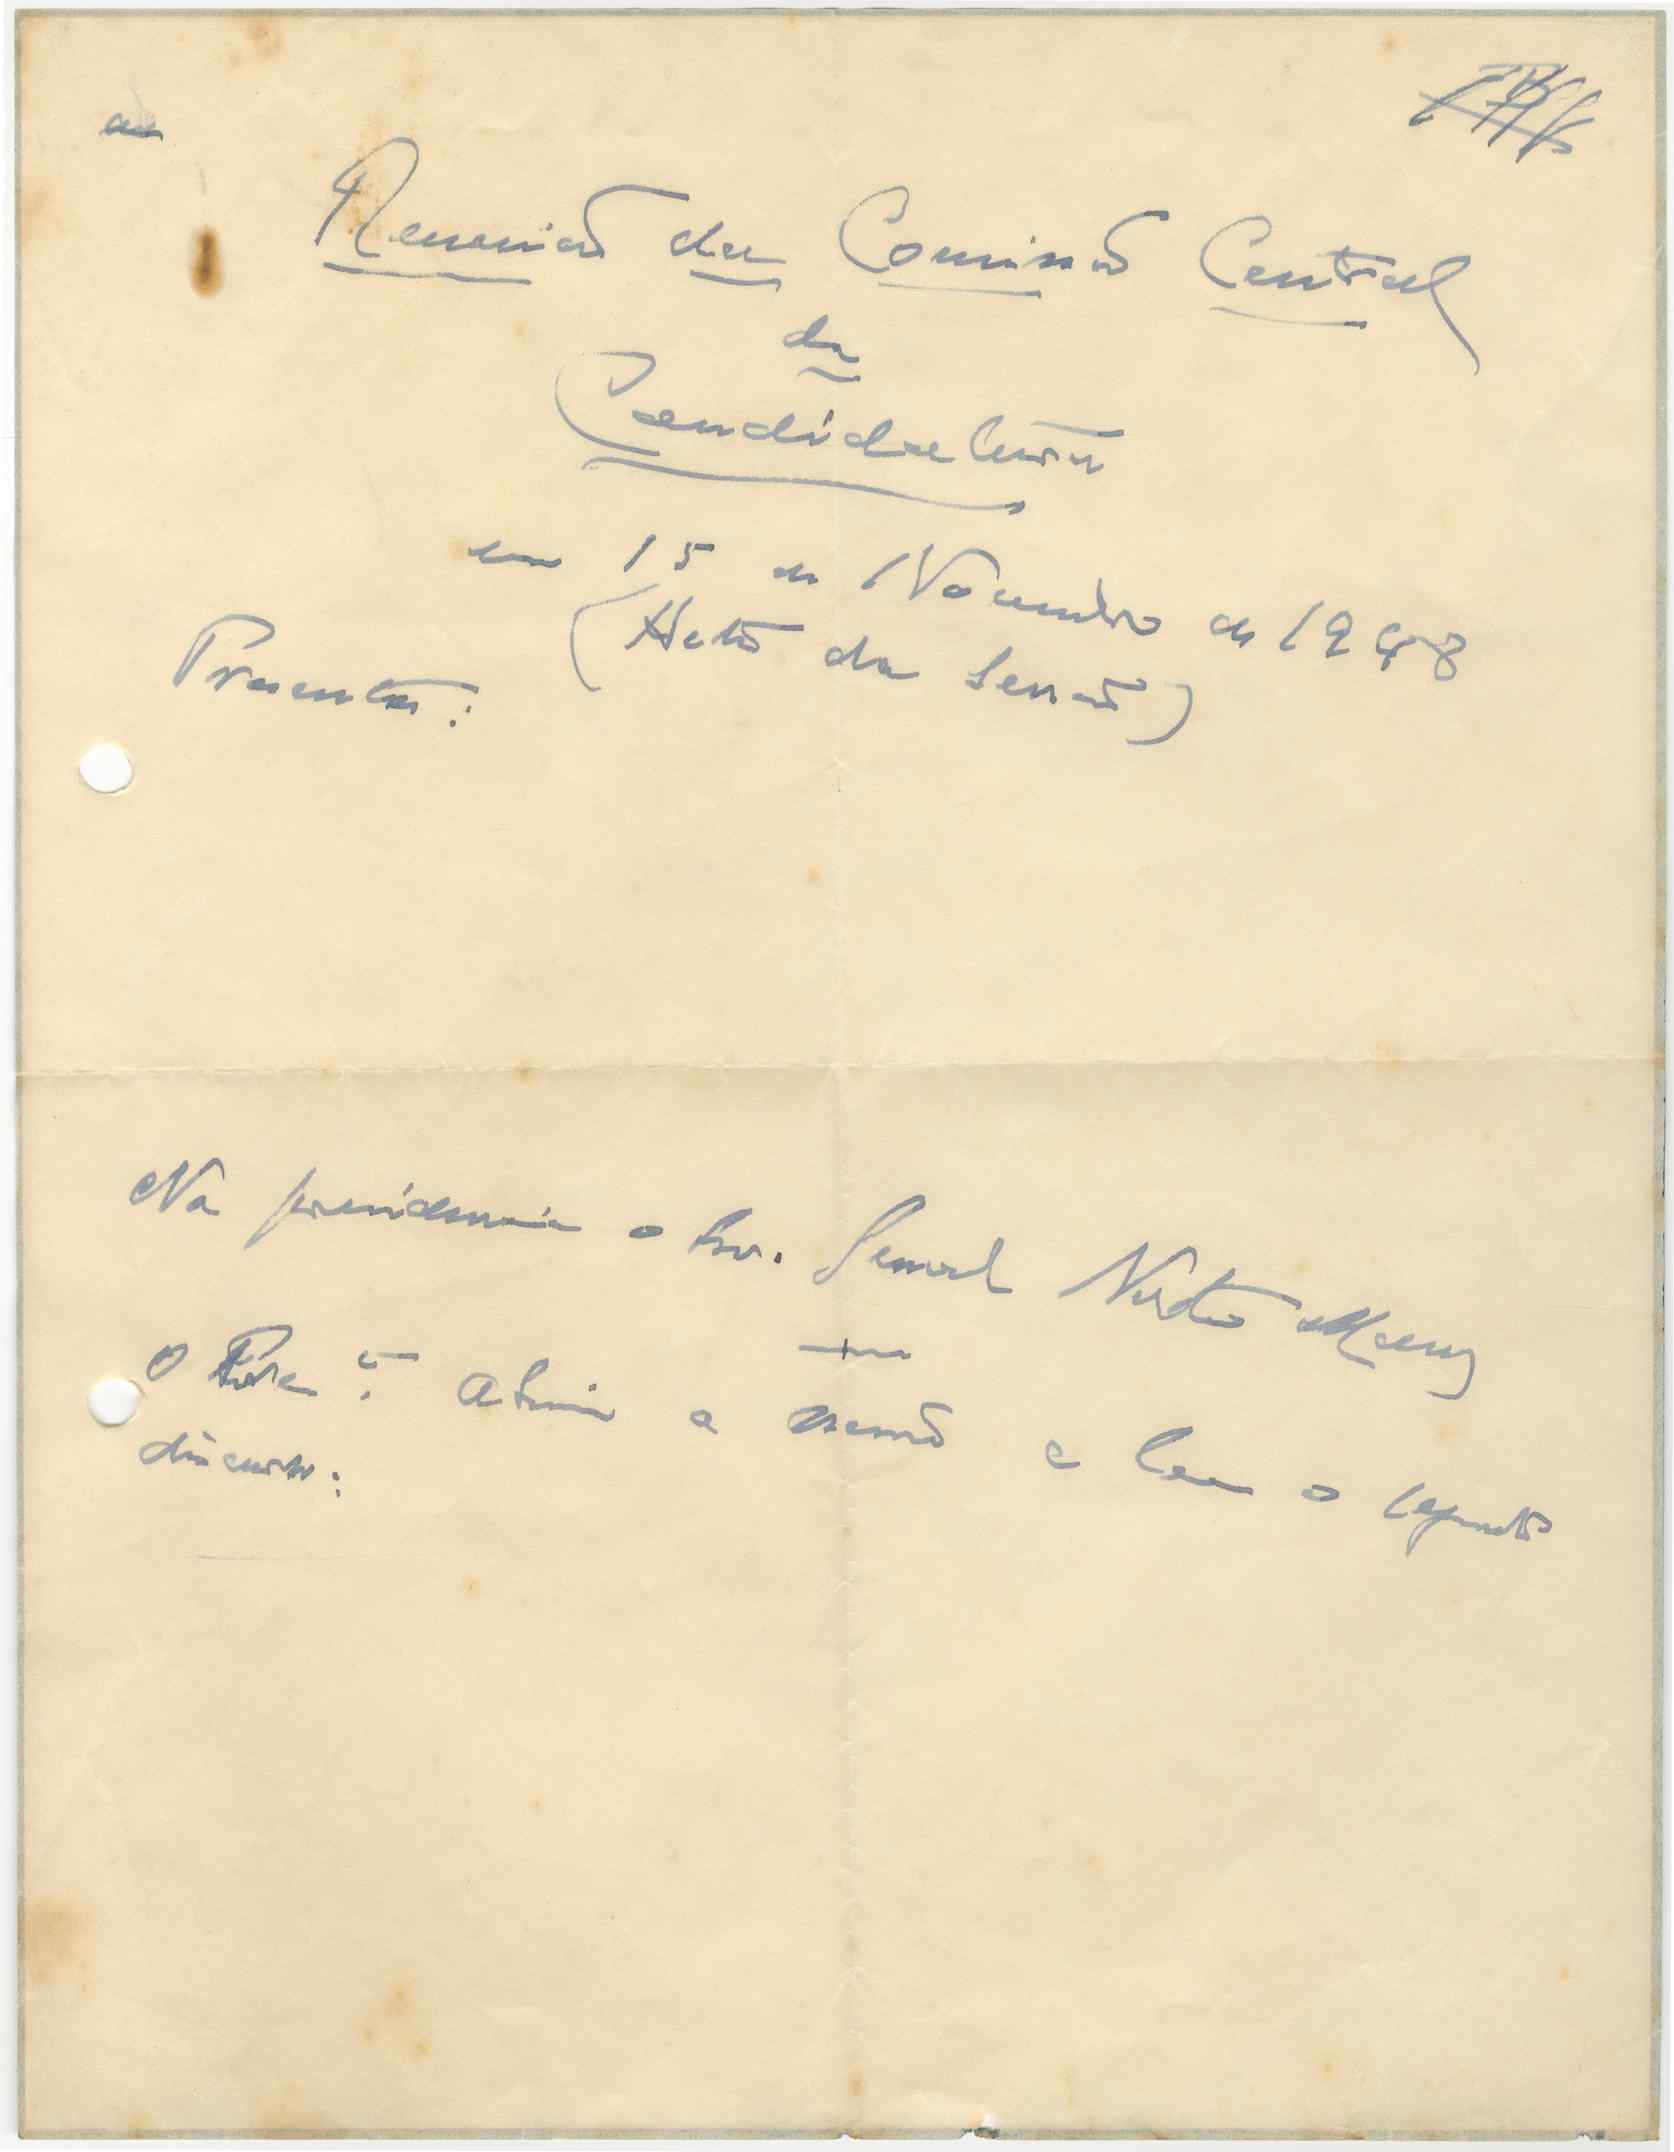 Reunião da Comissão Central
da
Candidatura
em 15 de Novembro de 1948
(Acta da Sessão)
Presentes:
Na presidencia o Snr. General Norton Mattos
O abriu a sessão e leu o seguinte
discurso: